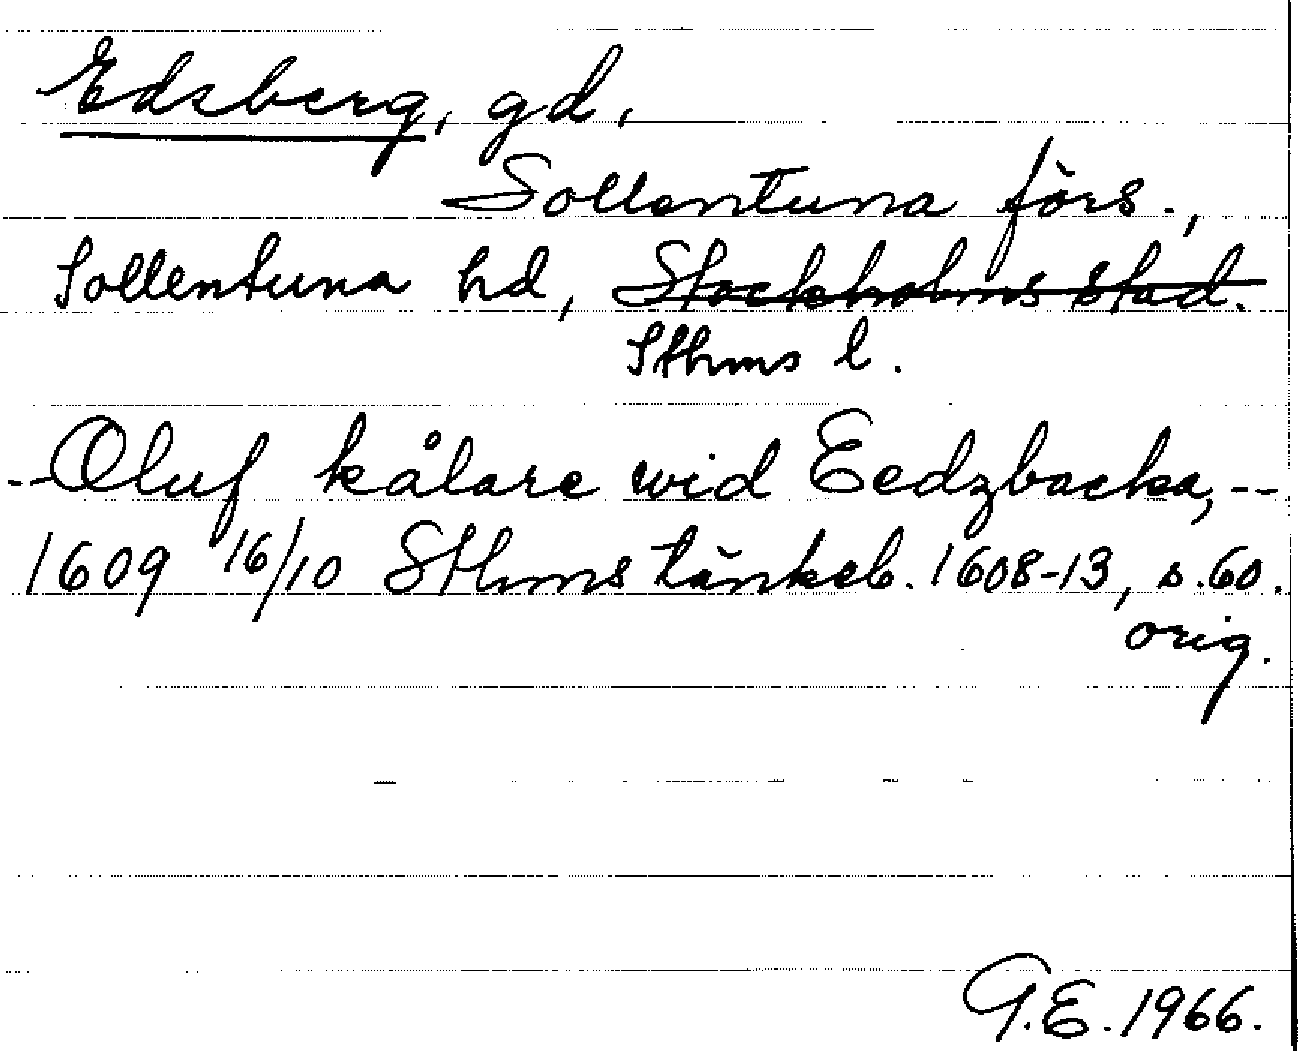 Edsberg, gd,
Sollentuna förs.,
Sollentuna hd, Stockholms stad.
Sthms l.
-- Oluf kålare wid Eedzbacka, --
1609 16/10 Sthms tänkeb. 1608-13, s. 60.
orig.
G.E. 1966.